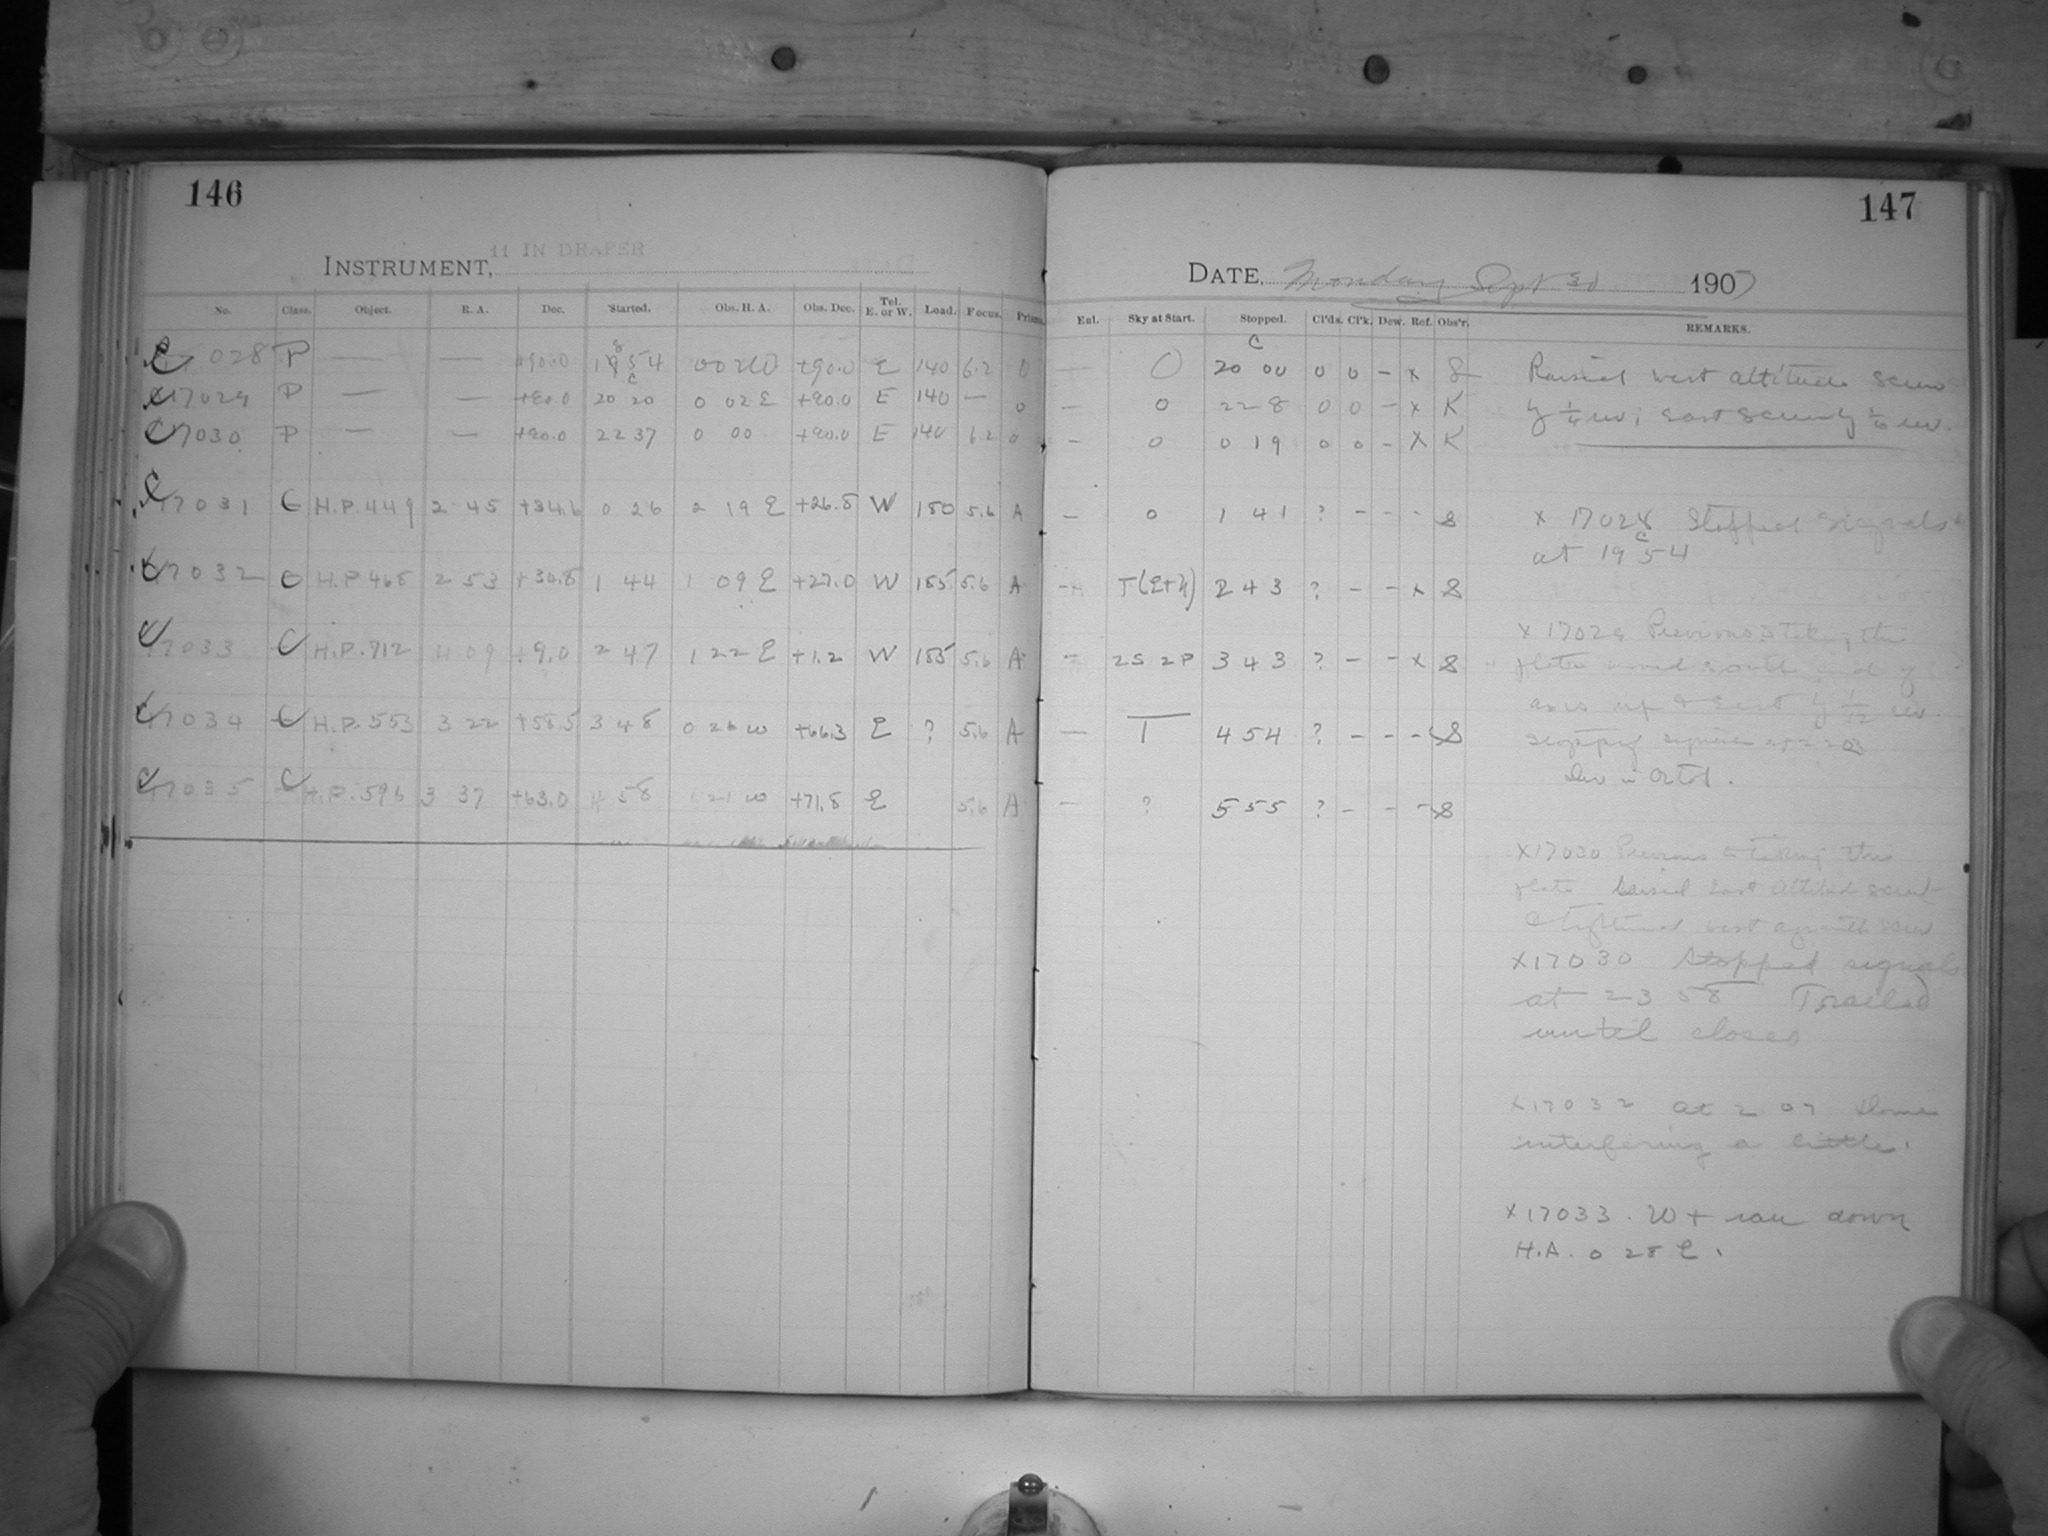 146
INSTRUMENT, 11 IN DRAPER
No. Class. Object. R. A. Dec. Started. Obs. H. A. Obs. Dec. Tel. E. or W. Load. Focus. Prisms.
028 P — — +90.0 54 +90.0 E 140 6.2 0
17029 P — — +90.0 20 20 0 02 E +90.0 E 140 — 0
17030 P — — +90.0 22 37 0 00 +90.0 E 140 6.2 0
17031 C H.P. 449 2 45 +34.6 0 26 2 19 E +26.8 W 150 5.6 A
17032 C H.P. 468 2 53 +34.8 1 44 1 09 E +27.0 W 155 5.6 A
17033 C H.P. 712 4 09 +9.0 2 47 1 22 E +1.2 W 155 5.6 A
17034 C H.P. 553 3 22 +58.5 3 48 0 26 W +66.3 E ? 5.6 A
17035 C H.P. 596 3 37 +63.0 4 58 21 W +71.8 E 5.6 A
147
DATE, Monday Sept 30 1907
Enl. Sky at Start. Stopped. Cl'ds. Cl'k. Dew. Ref. Obs'r. REMARKS.
— 0 20 00 0 0 — x S
— 0 22 8 0 0 — x K
— 0 0 19 0 0 — x K
— 0 1 41 ? - - - S
— 2 43 ? — - x S
— 2S 2P 3 43 ? — - x S
— T 4 54 ? - - - S
— ? 5 55 ? - - - S
Raised west altitude screw
by 1/4 rev; east screw by rev.
x 17028 Stopped signals
at 19 54
x 17029 Previous to taking this
plate moved south end of
axis up & East by 1/12 rev.
Dew in
x 17030 Previous to taking this
plate raised East altitude screw
& tightened west azimuth screw
x 17030 Stopped signals
at 23 58 Trailed
until closed
x 17032 at 2 07 dome
interfering a little.
x 17033. Wt ran down
H.A. 0 28 E.